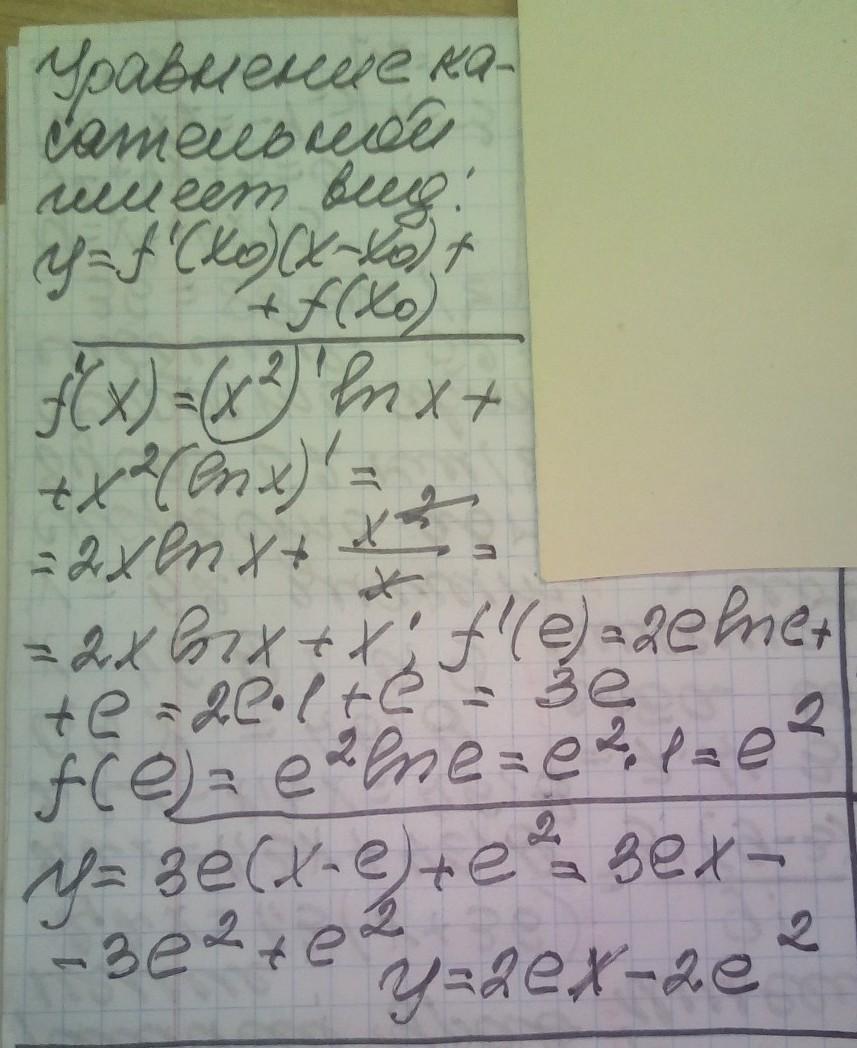 Уравнение ка-
сательной
имеет вид:
y=f'(x₀)(x-x₀)+
+f(x₀)
f'(x)=(x²)'ln x+
+x²(ln x)'=
=2x ln x+x²/x=
=2x ln x+x; f'(e)=2e ln e+
+e=2e·1+e=3e
f(e)=e² ln e=e²·1=e²
y=3e(x-e)+e²=3ex-
-3e²+e²
y=2ex-2e²